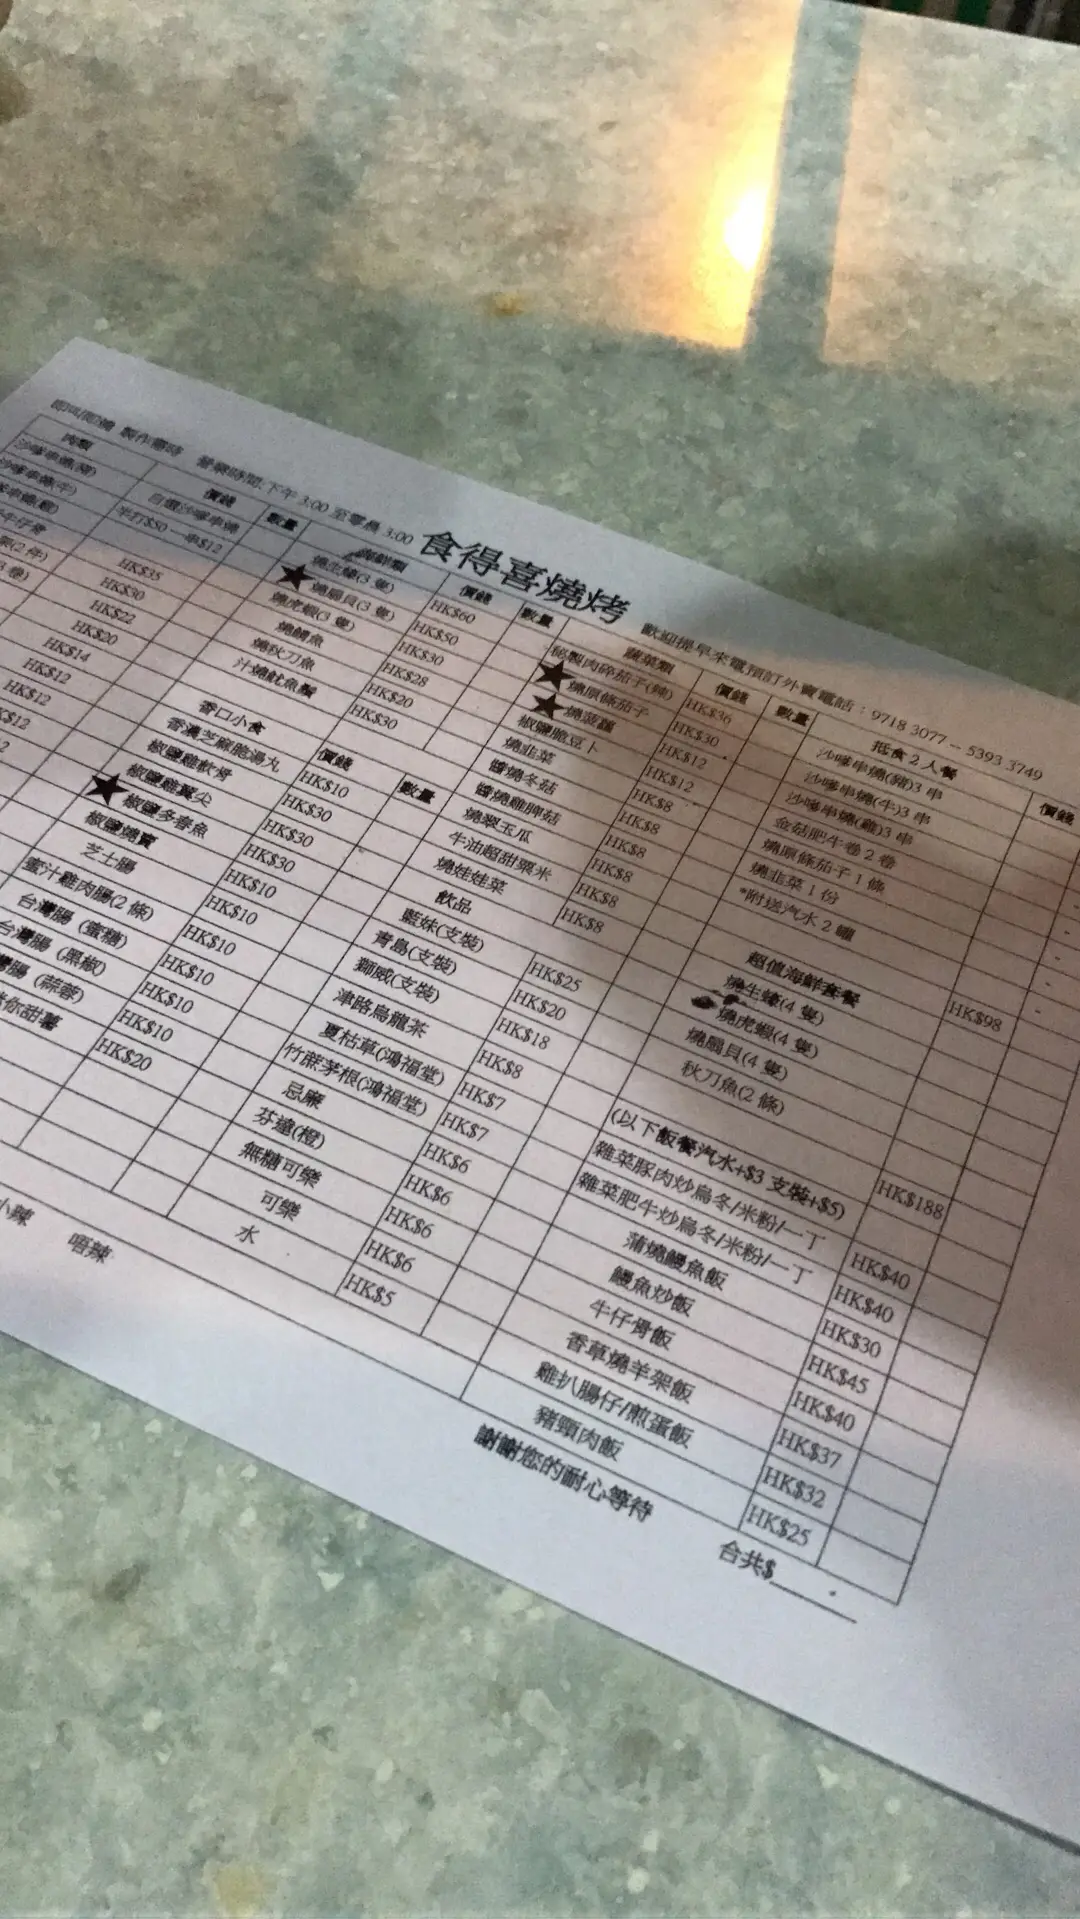 食得喜燒烤
即叫即燒 製作需時 營業時間:下午 3:00 至零晨 3:00
歡迎提早來電預訂外賣電話：9718 3077 -- 5393 3749
肉類 價錢 數量
沙嗲串燒(豬) 自選沙嗲串燒
沙嗲串燒(牛) 半打$50 一串$12
串燒(雞)
牛仔骨 HK$35
(2 件) HK$30
HK$22
HK$20
HK$14
HK$12
HK$12
K$12
蜜汁雞肉腸(2 條) HK$10
台灣腸（蜜糖） HK$10
台灣腸（黑椒） HK$10
灣腸（蒜蓉） HK$10
你甜薯 HK$20
小辣 唔辣
海鮮類 價錢 數量
燒生蠔(3 隻) HK$60
★ 燒扇貝(3 隻) HK$50
燒虎蝦(3 隻) HK$30
燒鯖魚 HK$28
燒秋刀魚 HK$20
汁燒魷魚鬚 HK$30
香口小食 價錢 數量
香濃芝麻脆湯丸 HK$10
椒鹽雞軟骨 HK$30
椒鹽雞翼尖 HK$30
★ 椒鹽多春魚 HK$30
椒鹽燒賣 HK$10
芝士腸 HK$10
蔬菜類 價錢 數量
秘製肉碎茄子(辣) HK$36
★ 燒原條茄子 HK$30
★ 燒菠蘿 HK$12
椒鹽脆豆卜 HK$12
燒韭菜 HK$8
醬燒冬菇 HK$8
醬燒雞脾菇 HK$8
燒翠玉瓜 HK$8
牛油超甜粟米 HK$8
燒娃娃菜 HK$8
飲品
藍妹(支裝) HK$25
青島(支裝) HK$20
獅威(支裝) HK$18
津路烏龍茶 HK$8
夏枯草(鴻福堂) HK$7
竹蔗茅根(鴻福堂) HK$7
忌廉 HK$6
芬達(橙) HK$6
無糖可樂 HK$6
可樂 HK$6
水 HK$5
抵食 2 人餐 價錢
沙嗲串燒(豬)3 串
沙嗲串燒(牛)3 串
沙嗲串燒(雞)3 串
金菇肥牛卷 2 卷
燒原條茄子 1 條
燒韭菜 1 份
*附送汽水 2 罐
HK$98
超值海鮮套餐
燒生蠔(4 隻)
燒虎蝦(4 隻)
燒扇貝(4 隻)
秋刀魚(2 條)
HK$188
(以下飯餐汽水+$3 支裝+$5)
雜菜豚肉炒烏冬/米粉/一丁 HK$40
雜菜肥牛炒烏冬/米粉/一丁 HK$40
蒲燒鰻魚飯 HK$30
鰻魚炒飯 HK$45
牛仔骨飯 HK$40
香草燒羊架飯 HK$37
雞扒腸仔/煎蛋飯 HK$32
豬頸肉飯 HK$25
謝謝您的耐心等待
合共$